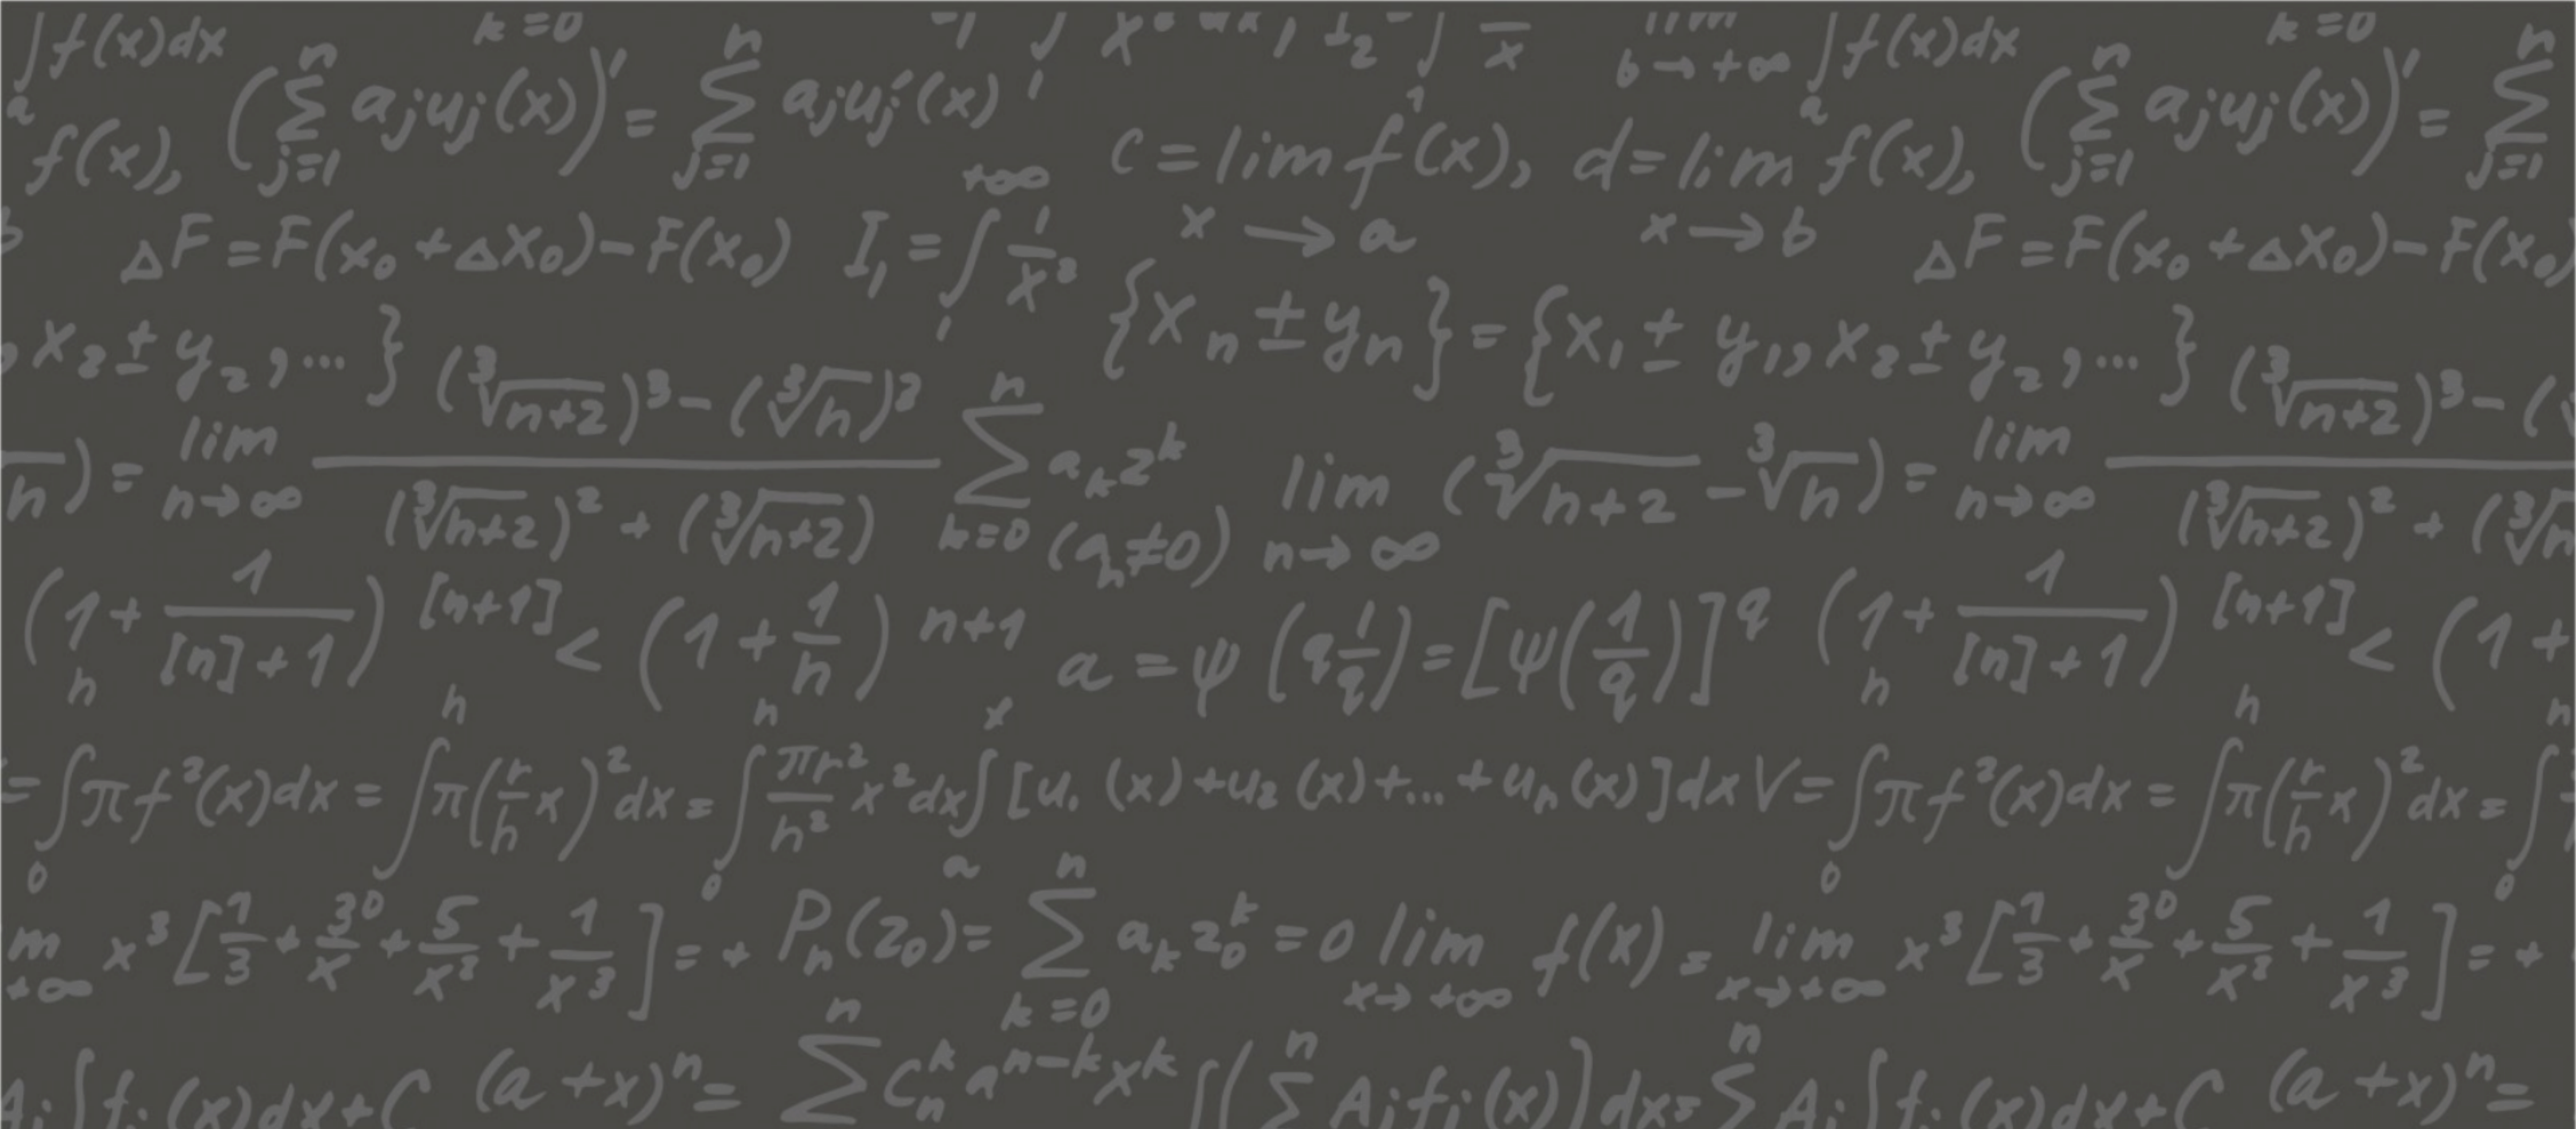 ∫ₐ f(x)dx k=0 -1 ∫ x dx, I₂ - ∫₁ x lim b→+∞ ∫ₐ f(x)dx k=0
f(x), (∑ⁿⱼ₌₁ aⱼuⱼ(x))' = ∑ⁿⱼ₌₁ aⱼuⱼ'(x) c = lim f(x), x→a d = lim f(x), x→b (∑ⁿⱼ₌₁ aⱼuⱼ(x))' = ∑ⁿⱼ₌₁
b ΔF = F(x₀ + Δx₀) - F(x₀) I₁ = ∫₁⁺∞ 1/x² ΔF = F(x₀ + Δx₀) - F(x₀)
, x₂ ± y₂, ...} {xₙ ± yₙ} = {x₁ ± y₁, x₂ ± y₂, ...}
n) = lim n→∞ ((∛n+2)³ - (∛n)³)/((∛n+2)² + (∛n+2)) ∑ⁿₖ₌₀ aₖzᵏ (aₙ≠0) lim n→∞ (∛n+2 - ∛n) = lim n→∞ ((∛n+2)³ - ( / (∛n+2)² + (∛n
(1 + 1/([n]+1))^[n+1] < (1 + 1/n)^n+1 a = ψ(q 1/q) = [ψ(1/q)]^q (1 + 1/([n]+1))^[n+1] < (1 +
= ∫₀ʰ πf²(x)dx = ∫ʰ π(r/h x)²dx = ∫₀ʰ πr²/h² x²dx ∫ₐˣ [u₁(x) + u₂(x) + ... + uₙ(x)]dx V = ∫₀ʰ πf²(x)dx = ∫ʰ π(r/h x)²dx = ∫₀ʰ
m +∞ x³[1/3 + 30/x + 5/x² + 1/x³] = + Pₙ(z₀) = ∑ⁿₖ₌₀ aₖz₀ᵏ = 0 lim x→+∞ f(x) = lim x→+∞ x³[1/3 + 30/x + 5/x² + 1/x³] = +
Aᵢ∫fᵢ(x)dx + C (a + x)ⁿ = ∑ⁿ Cₙᵏ aⁿ⁻ᵏxᵏ ∫(∑ⁿ Aᵢfᵢ(x))dx = ∑ⁿ Aᵢ∫fᵢ(x)dx + C (a + x)ⁿ =